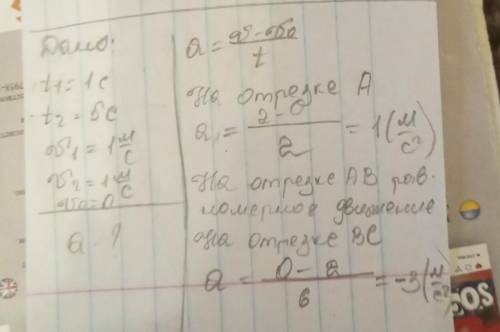 Дано:
t₁ = 1 с
t₂ = 5 с
v₁ = 1 м/с
v₂ = 1 м/с
v₀ = 0
a - ?
a = (v - v₀)/t
На отрезке А
a₁ = (2 - 0)/2 = 1 (м/с²)
На отрезке АВ рав-
номерное движение
На отрезке ВС
a = (0 - 2)/6 = -3 (м/с²)
SOS